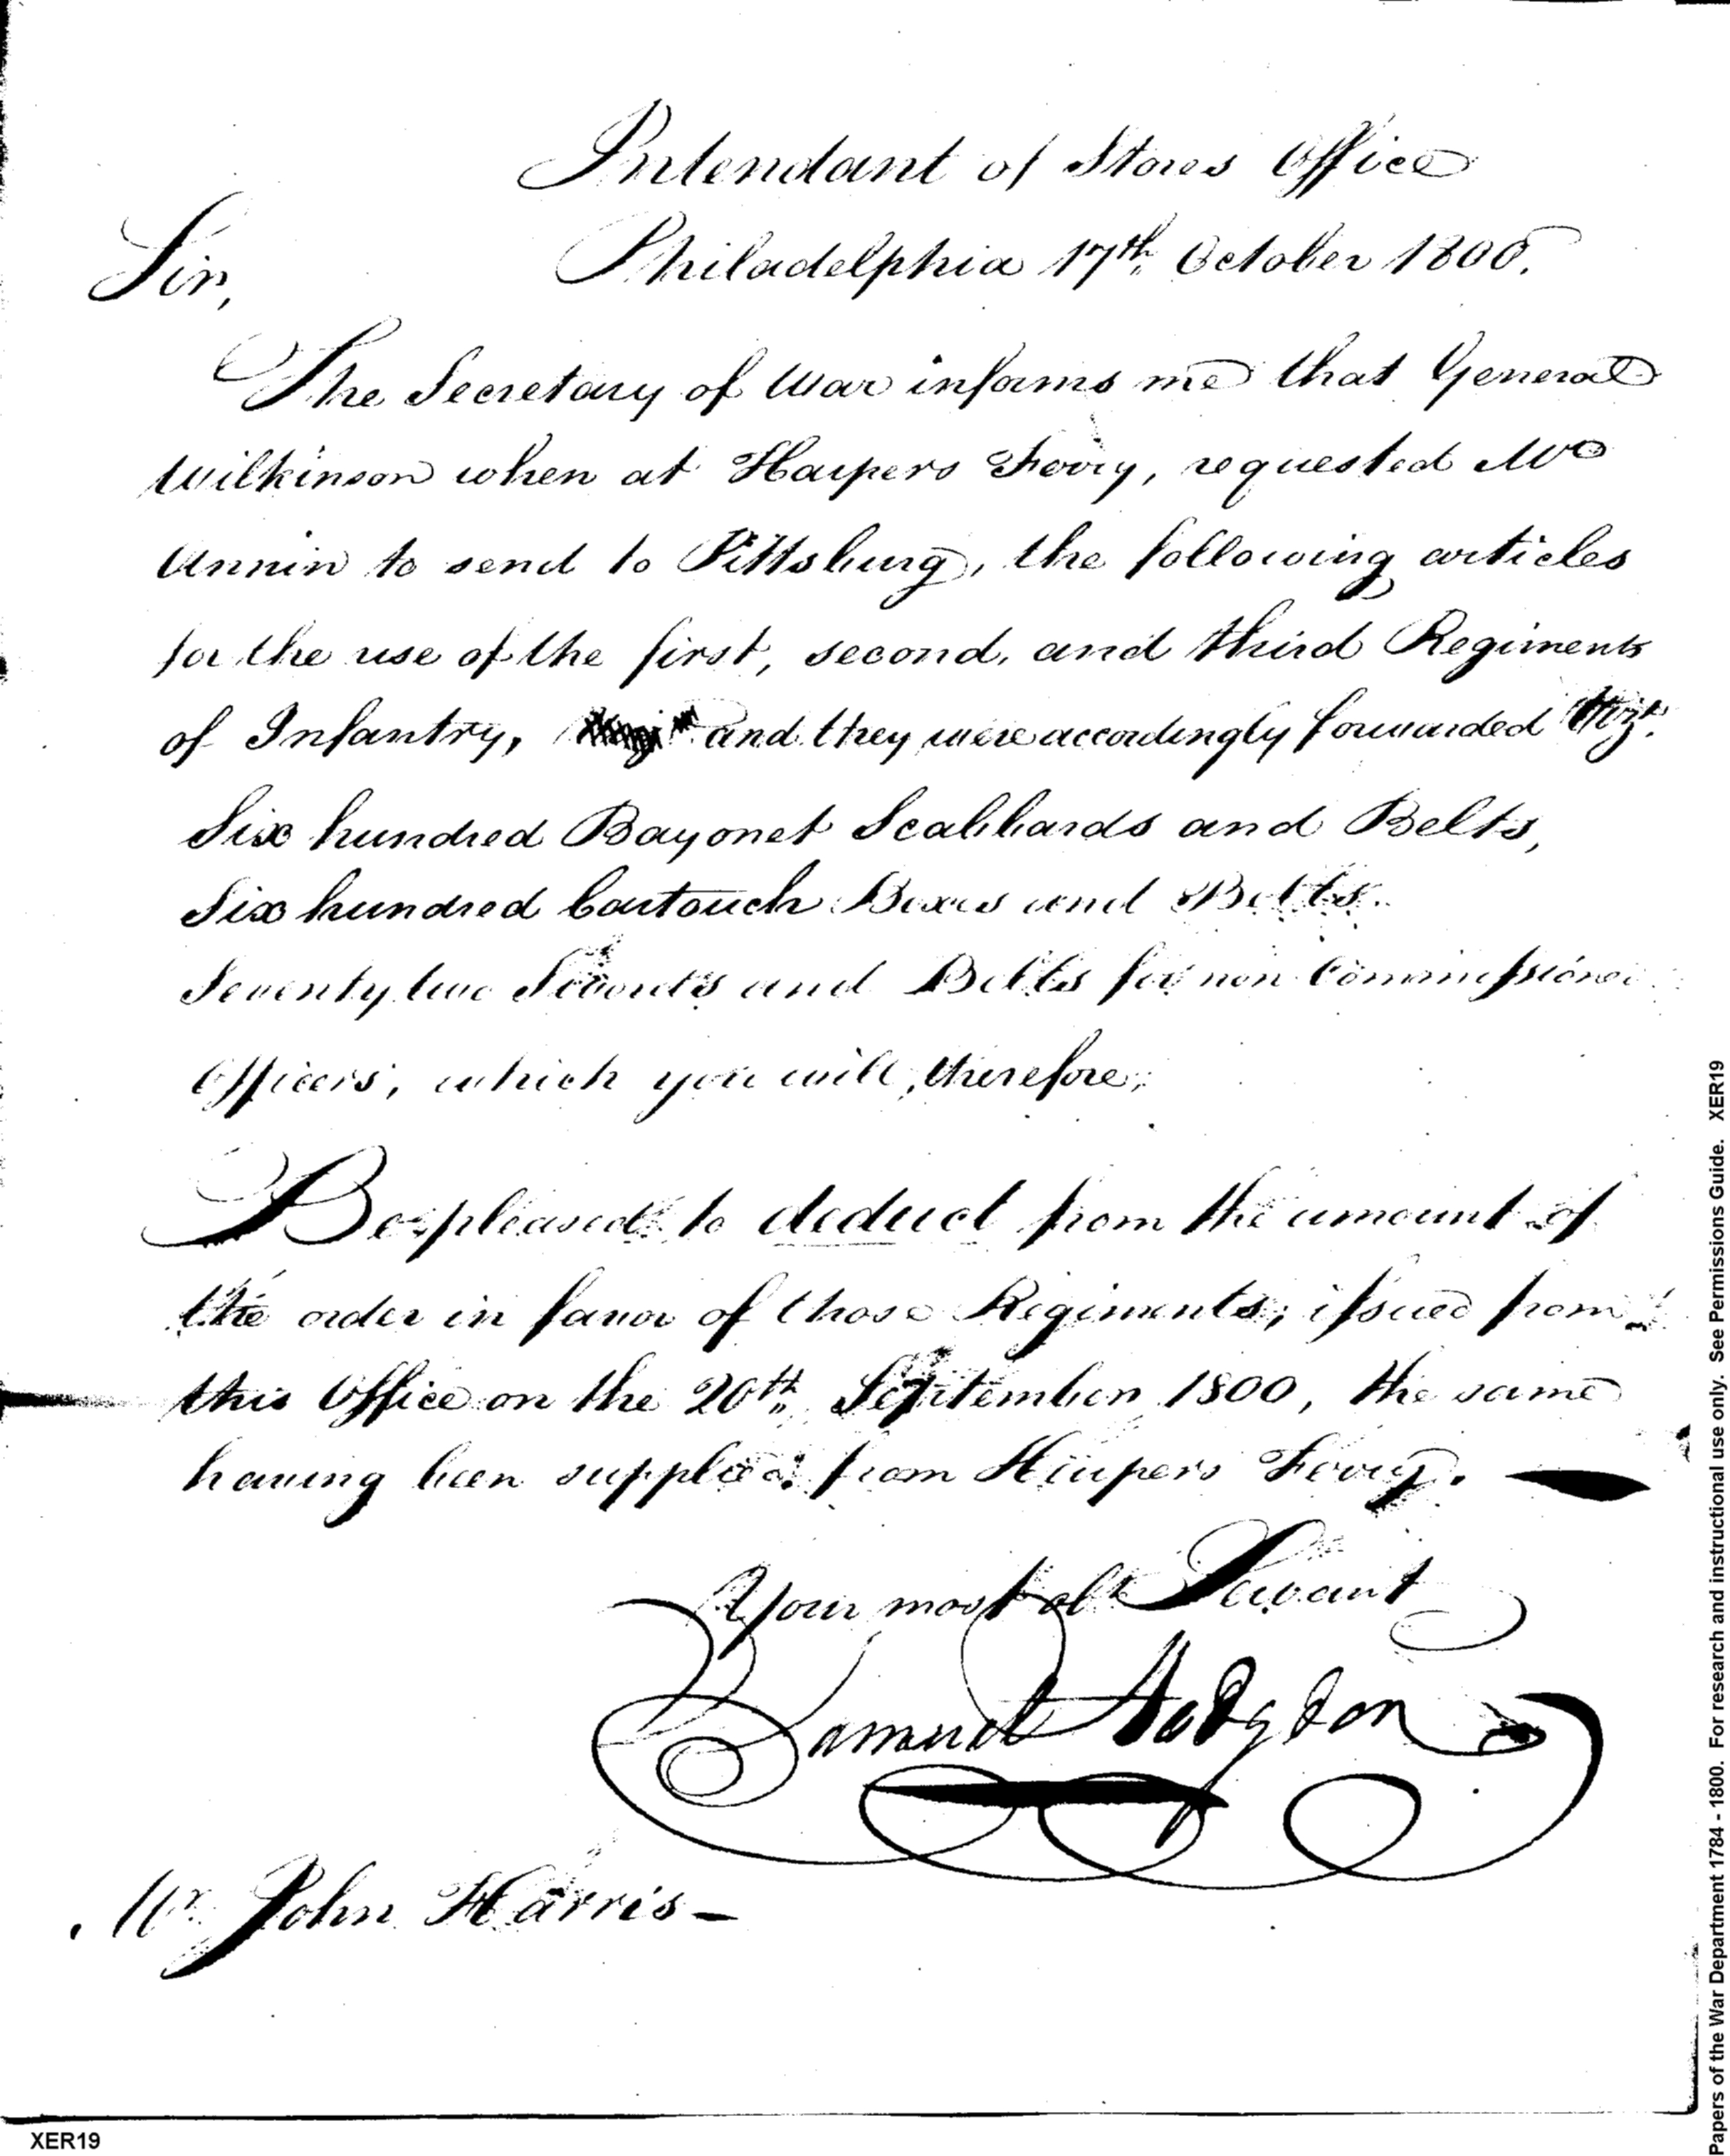 Intendant of Stores Office
Philadelphia 17th. October 1800.
Sir,
The Secretary of War informs me that General
Wilkinson when at Harpers Ferry, requested Mr
Annin to send to Pittsburg, the following articles
for the use of the first, second, and third Regiments
of Infantry, and they were accordingly forwarded Vizt.
Six hundred Bayonet Scabbards and Belts,
Six hundred Cartouch Boxes and Belts.
Seventy two Swords and Belts for non Commissioned
Officers, which you will, therefore,
Be pleased to deduct from the amount of
the order in favor of those Regiments, issued from
this Office on the 20th. September 1800, the same
having been supplied from Harpers Ferry.
Your most obt Servant
Samuel Hodgdon
Mr. John Harris
Papers of the War Department 1784 - 1800. For research and instructional use only. See Permissions Guide. XER19
XER19